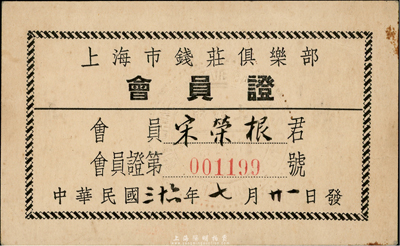 上海市錢莊俱樂部
會員證
會員宋榮根君
會員證第001199號
中華民國卅六年七月廿一日發